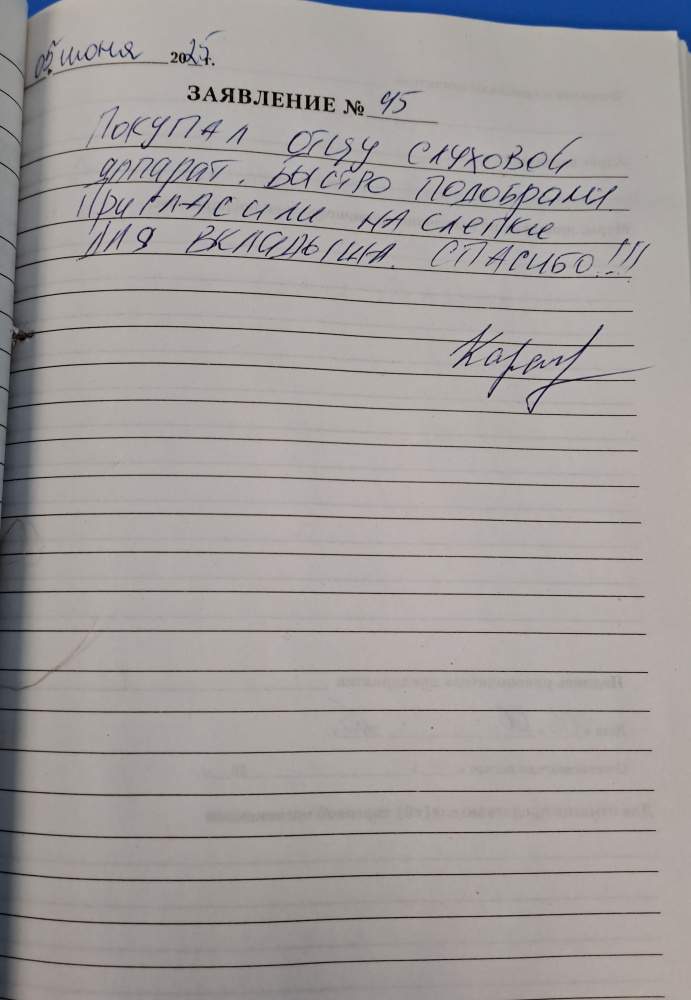 05 июня 2025 г.
ЗАЯВЛЕНИЕ № 45
Покупал отцу слуховой
аппарат. Быстро подобрали.
Пригласили на слепки
для вкладыша. Спасибо!!!